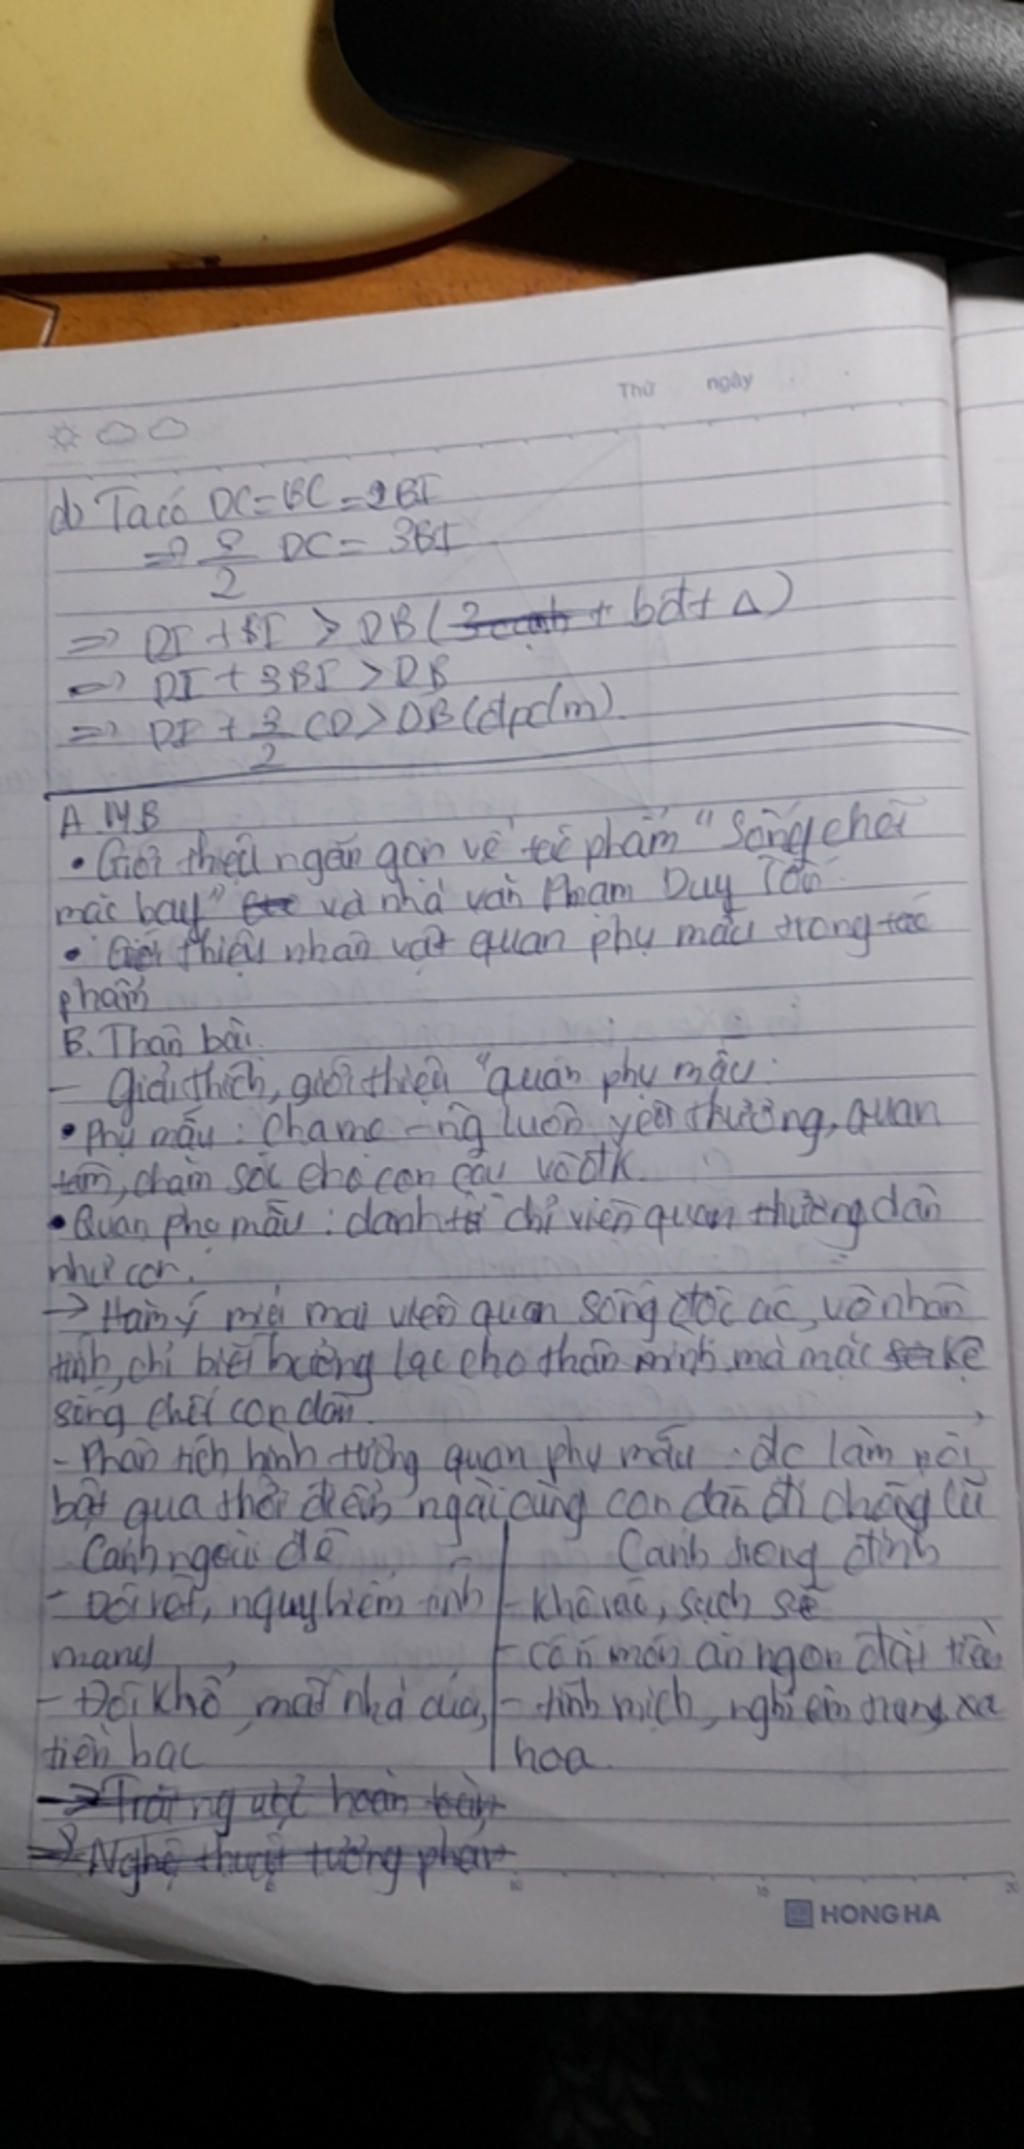 Thứ ngày
d) Ta có DC = BC = 2BI
=> 3/2 DC = 3BI
=> DI + BI > DB ( + bđt Δ)
=> DI + 3BI > DB
=> DI + 3/2 CD > DB (đpcm)
A MB
• Giới thiệu ngắn gọn về tác phẩm "Sống chết
mặc bay" và nhà văn Phạm Duy Tốn
• Giới thiệu nhân vật quan phụ mẫu trong tác
phẩm
B. Thân bài.
- Giải thích, giới thiệu "quan phụ mẫu
• Phụ mẫu: Cha mẹ - ng luôn yêu thương, quan
tâm, chăm sóc cho con cái vô đk.
• Quan phụ mẫu: danh từ chỉ viên quan thương dân
như con.
-> Hàm ý mỉa mai viên quan sống độc ác, vô nhân
tính, chỉ biết hưởng lạc cho thân mình mà mặc kệ
sống chết con dân.
- Phân tích hình tượng quan phụ mẫu: đc làm nổi
bật qua thời điểm ngài cùng con dân đi chống lũ
Cảnh ngoài đê
- Đói rét, nguy hiểm tính
mạng
- Đói khổ, mất nhà cửa,
tiền bạc
Cảnh trong đình
- Khô ráo, sạch sẽ
- Có món ăn ngon đắt tiền
- tĩnh mịch, nghiêm trang, xa
hoa.
-> Trái ngược hoàn toàn
-> Nghệ thuật tương phản
HONG HA